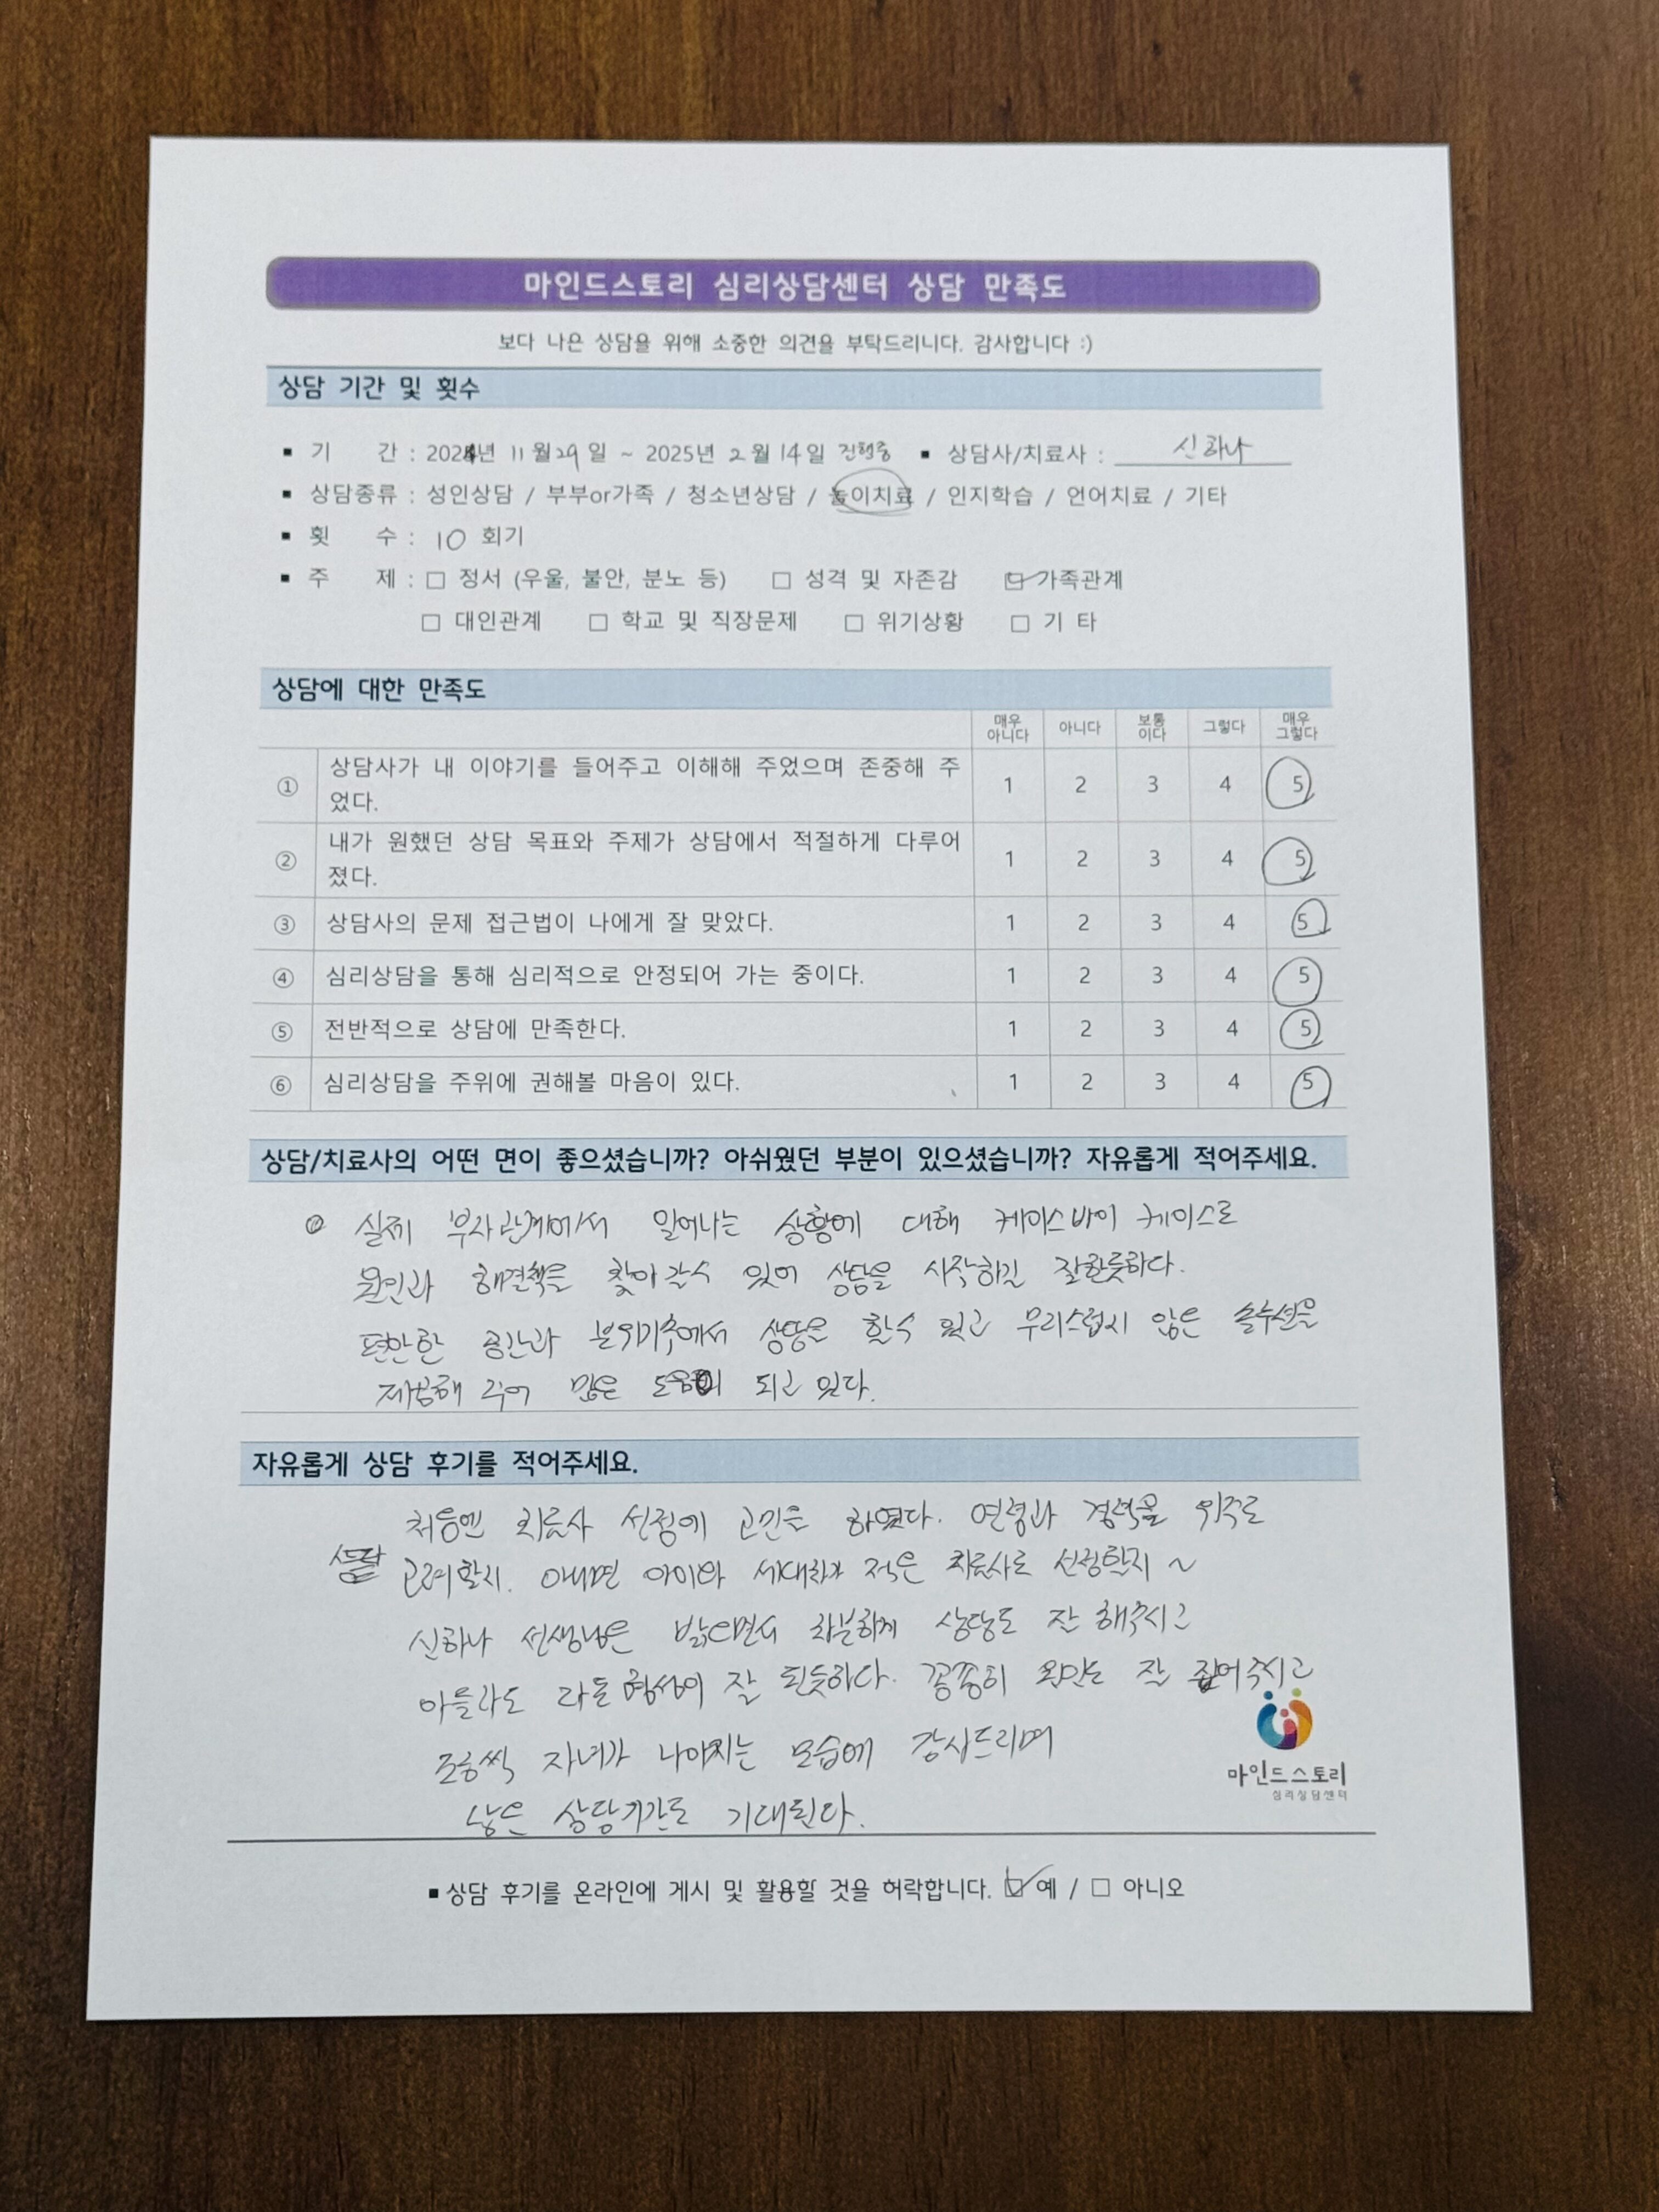 마인드스토리 심리상담센터 상담 만족도
보다 나은 상담을 위해 소중한 의견을 부탁드리니다. 감사합니다 :)
상담 기간 및 횟수
▪ 기 간 : 2024년 11월 29일 ~ 2025년 2월 14일 진행중 ▪ 상담사/치료사 : 신하나
▪ 상담종류 : 성인상담 / 부부or가족 / 청소년상담 / 놀이치료 / 인지학습 / 언어치료 / 기타
▪ 횟 수 : 10 회기
▪ 주 제 : □ 정서 (우울, 불안, 분노 등) □ 성격 및 자존감 ☑ 가족관계
□ 대인관계 □ 학교 및 직장문제 □ 위기상황 □ 기 타
상담에 대한 만족도
매우 아니다 아니다 보통 이다 그렇다 매우 그렇다
① 상담사가 내 이야기를 들어주고 이해해 주었으며 존중해 주 1 2 3 4 5
었다.
② 내가 원했던 상담 목표와 주제가 상담에서 적절하게 다루어 1 2 3 4 5
졌다.
③ 상담사의 문제 접근법이 나에게 잘 맞았다. 1 2 3 4 5
④ 심리상담을 통해 심리적으로 안정되어 가는 중이다. 1 2 3 4 5
⑤ 전반적으로 상담에 만족한다. 1 2 3 4 5
⑥ 심리상담을 주위에 권해볼 마음이 있다. 1 2 3 4 5
상담/치료사의 어떤 면이 좋으셨습니까? 아쉬웠던 부분이 있으셨습니까? 자유롭게 적어주세요.
실제 부자관계에서 일어나는 상황에 대해 케이스바이 케이스로
원인과 해결책을 찾아갈수 있어 상담을 시작하길 잘한듯하다.
편안한 공간과 분위기속에서 상담을 할수 있고 무리스럽지 않은 솔루션을
제공해 주어 많은 도움이 되고 있다.
자유롭게 상담 후기를 적어주세요.
처음엔 치료사 선정에 고민을 하였다. 연령과 경력을 위주로
상담 고려할지. 아니면 아이와 세대차가 적은 치료사로 선정할지 ~
신하나 선생님은 밝으면서 차분하게 상담도 잘 해주시고
아들과도 라돈형성이 잘 된듯하다. 꼼꼼히 원인도 잘 집어주시고
조금씩 자녀가 나아지는 모습에 감사드리며
남은 상담기간도 기대된다.
마인드스토리
심리상담센터
▪ 상담 후기를 온라인에 게시 및 활용할 것을 허락합니다. ☑ 예 / □ 아니오